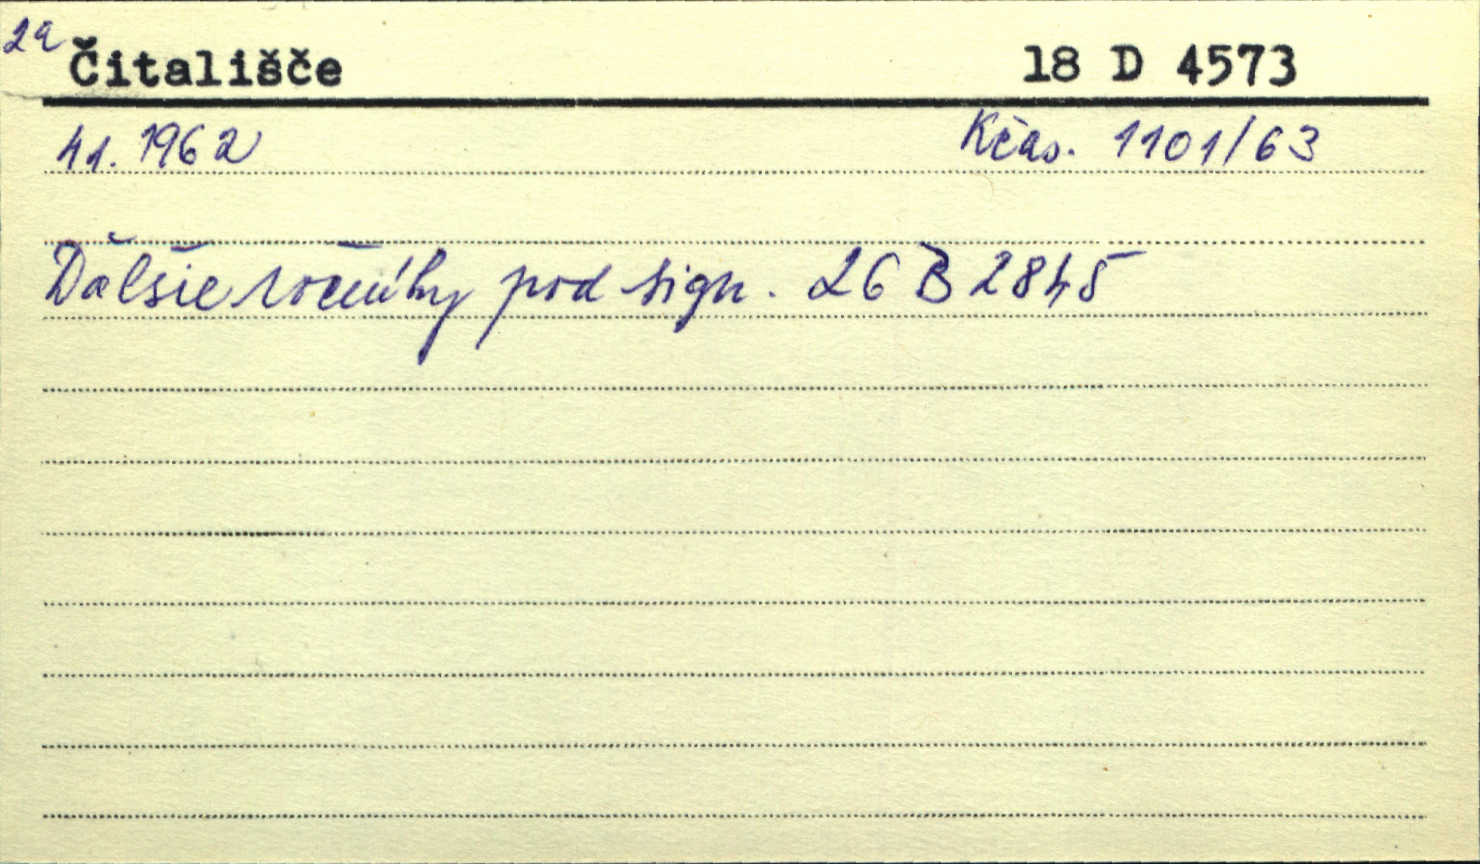 2a
Čitališče 18 D 4573
41. 1962 Kčas. 1101/63
Ďalšie ročníky pod sign. 26 B 2845